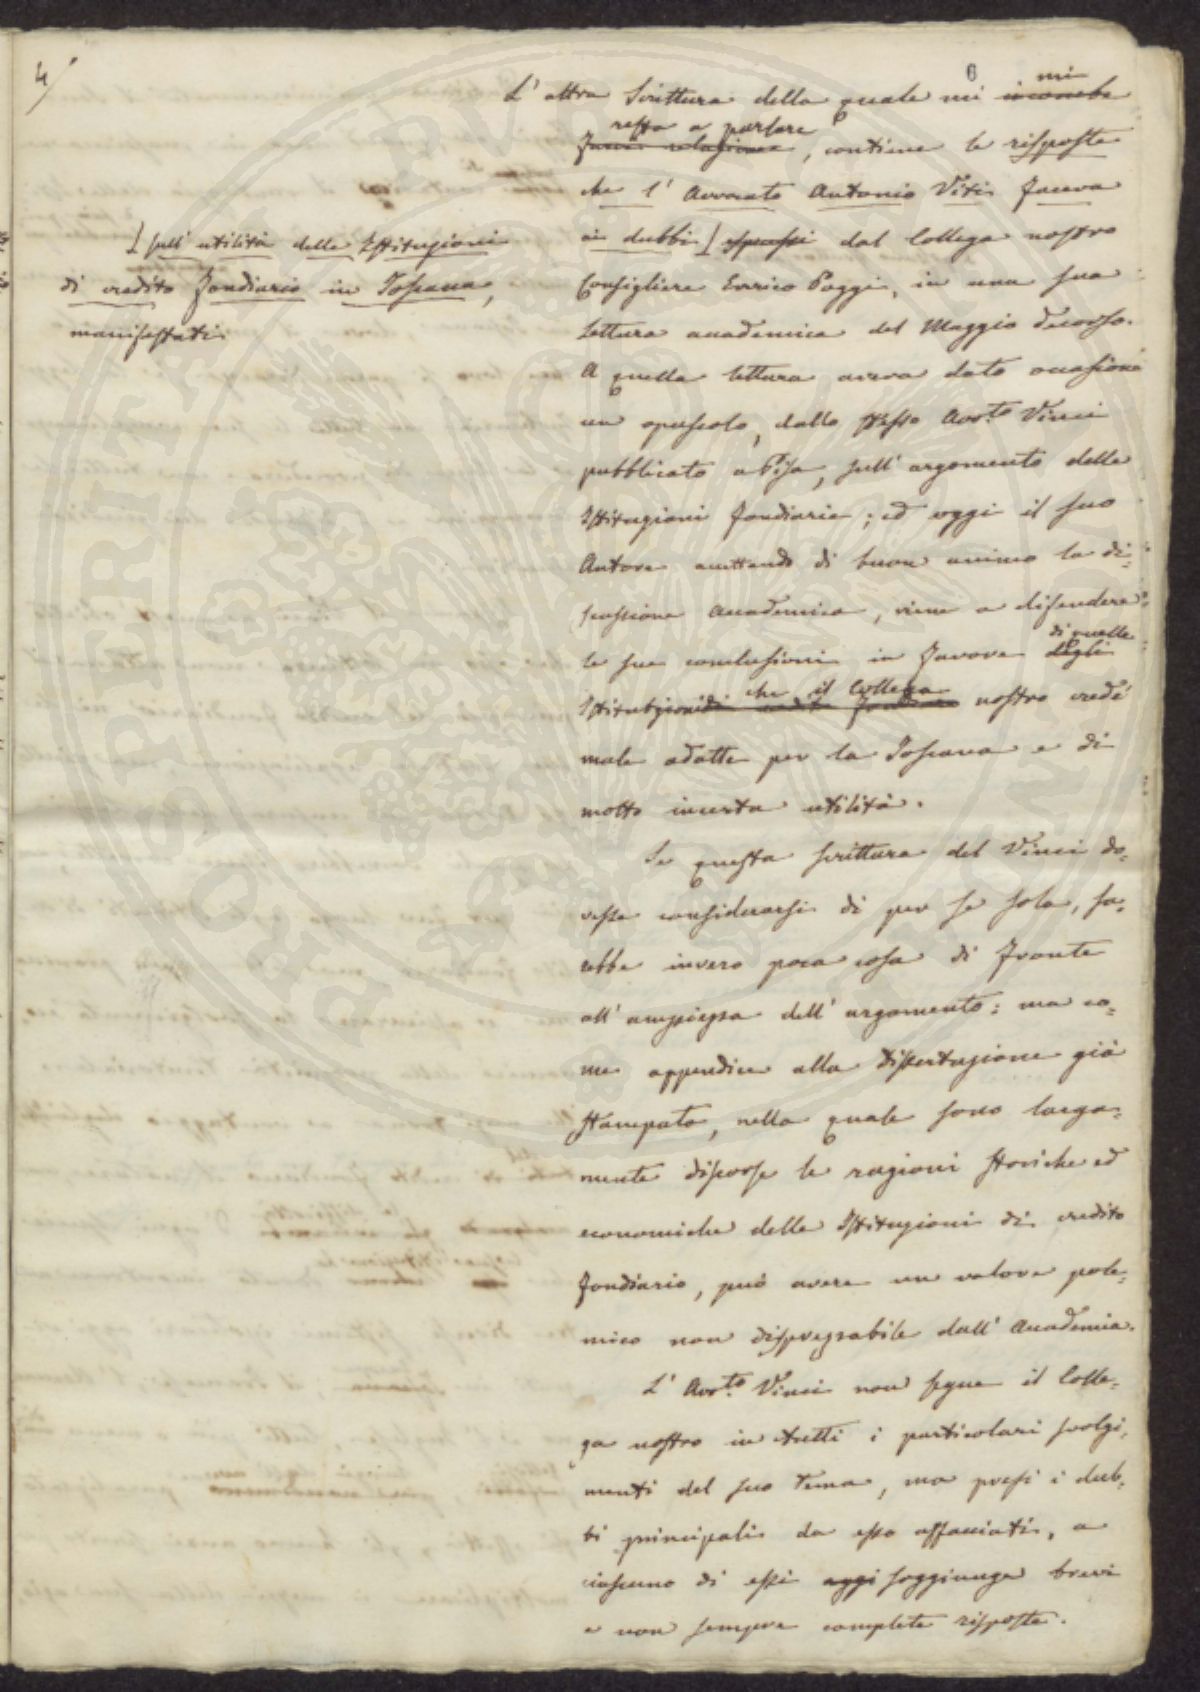 4/
6
mi
L' altra Scrittura della quale mi incombe
resta a parlare
far relazione, contiene le risposte
che l' Avvocato Antonio Vinci faceva
ai dubbi [ espressi dal Collega nostro
[ sull' utilità delle Istituzioni
di credito fondiario in Toscana,
manifestati
Consigliere Enrico Poggi, in una sua
Lettura accademica del Maggio decorso.
A quella lettura aveva dato occasione
un opuscolo, dallo stesso Avv.to Vinci
pubblicato a Pisa, sull' argomento delle
Istituzioni fondiarie; ed oggi il suo
Autore accettando di buon animo la di=
scussione Accademica, viene a difendere
di quelle
le sue conclusioni in favore degli
che il Collega
Istituzioni di credito fondiario nostro credè
male adatte per la Toscana e di
molto incerta utilità.
Se questa scrittura del Vinci do=
vesse considerarsi di per se sola, sa=
rebbe invero poca cosa di fronte
all' ampiezza dell' argomento: ma co=
me appendice alla Dissertazione già
stampata, nella quale sono larga=
mente discorse le ragioni storiche ed
economiche delle Istituzioni di credito
fondiario, può avere un valore pole=
mico non disprezzabile dall' Accademia.
L' Avv.to Vinci non segue il Colle=
ga nostro in tutti i particolari svolgi=
menti del suo Tema, ma presi i dub=
bi principali da esso affacciati, a
ciascuno di essi oggi soggiunge brevi
e non sempre complete risposte.